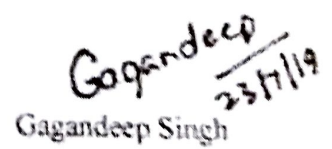 Gagandeep
23/7/19
Gagandeep Singh